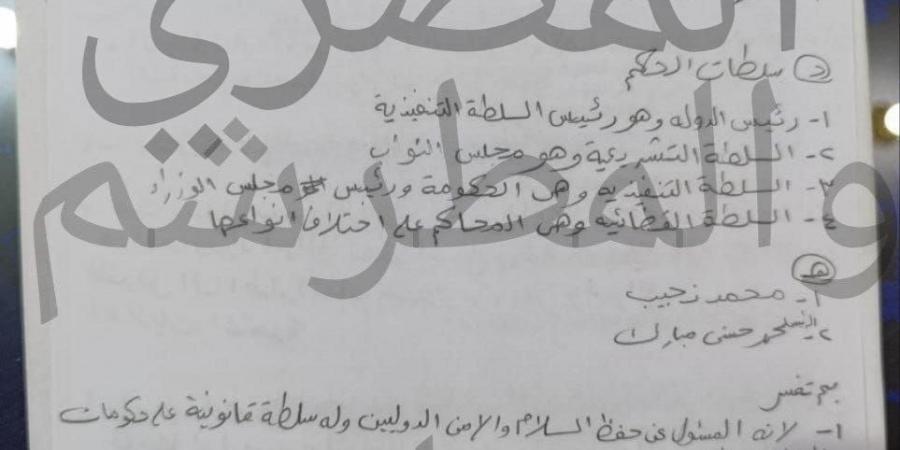 د سلطات الحكم
١- رئيس الدوله وهو رئيس السلطة التنفيذية
٢- السلطة التشريعية وهو مجلس النواب
٣- السلطة التنفيذيه وهى الحكومة ورئيس مجلس الوزراء
٤- السلطة القضائيه وهى المحاكم على اختلاف انواعها
هـ
١- محمد نجيب
٢- محمد حسنى مبارك
بم تفسر
١- لانه المسئول عن حفظ السلام والامن الدوليين وله سلطة قانونية على حكومات
المصري
والمطرشم